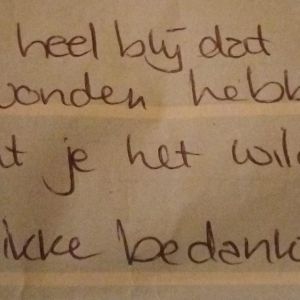 heel blij dat
vonden hebb
t je het wil
ikke bedank